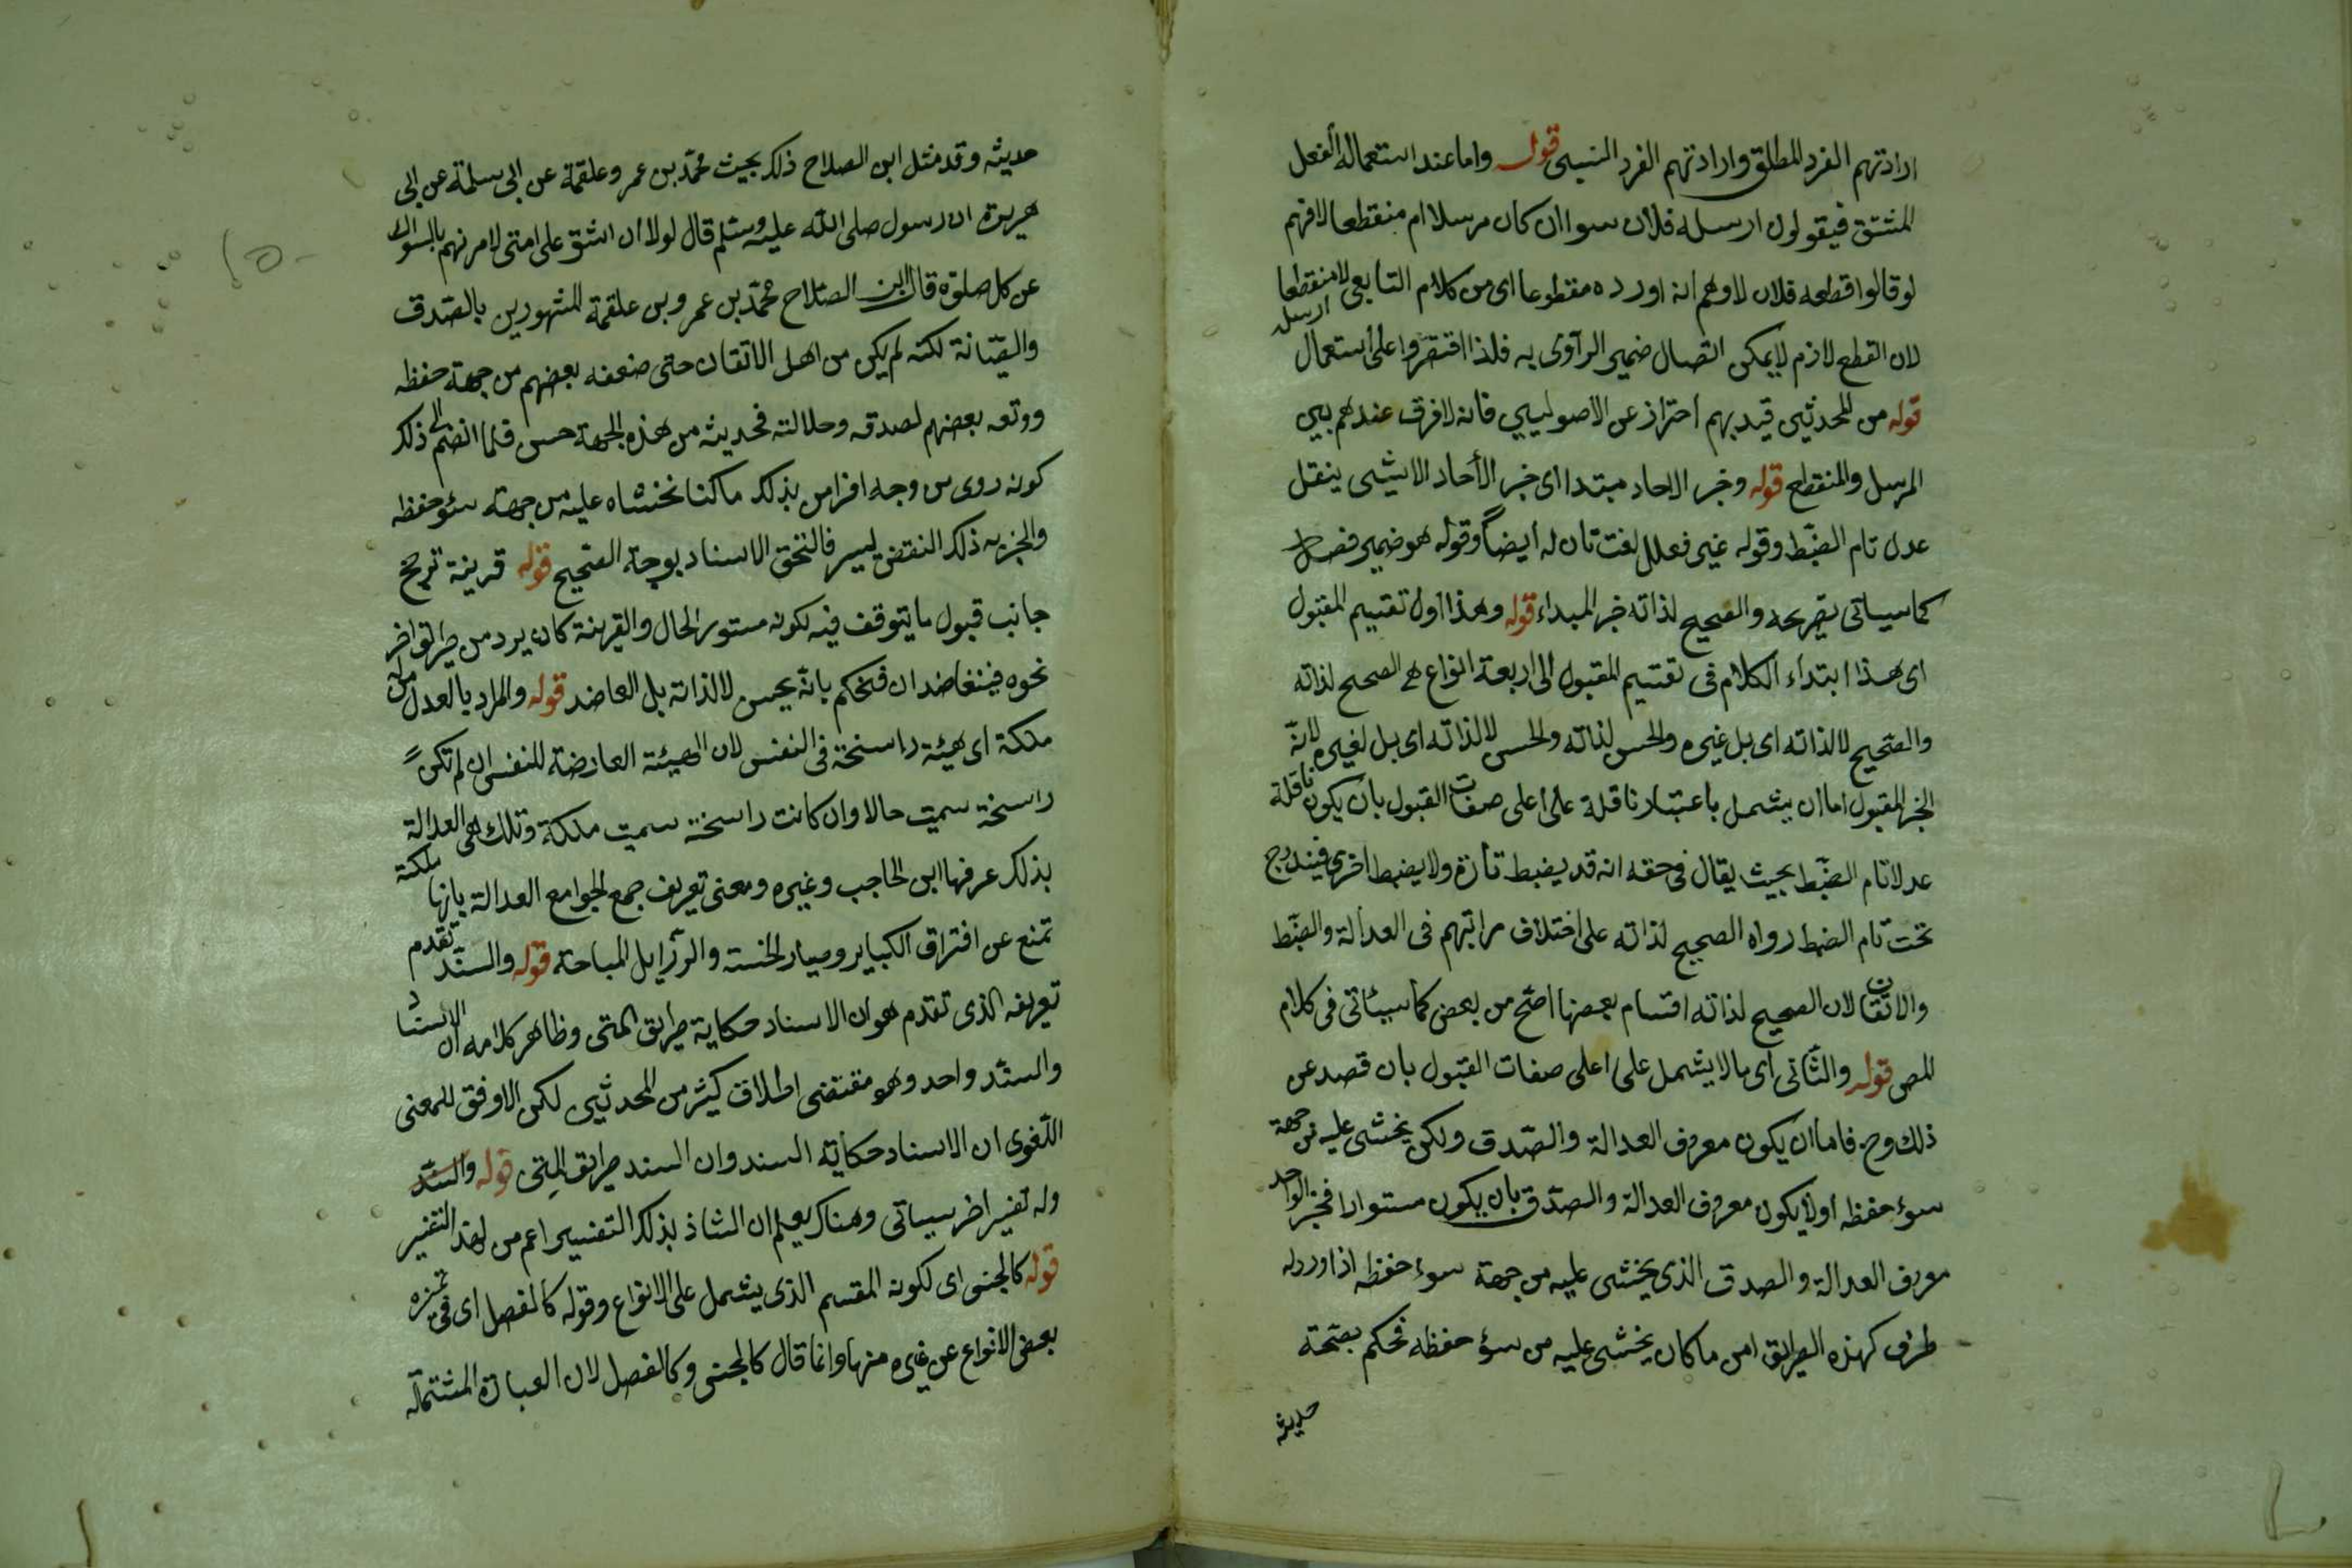 ارادتهم الفرد المطلق وارادتهم الفرد النسبى قوله واما عند استعماله الفعل
المشتق فيقولون ارسله فلان سواان كان مرسلا ام منقطعا لافهم
لو قالوا قطعه فلان لاوهم انه اورده مقطوعا اى من كلام التابعى لا منقطعا
لان القطع لازم لايمكن اتصال ضمير الرآوى به فلذا اقتصروا على استعمال ارسله
قوله من المحدثين قيد بهم احتراز عن الاصوليين فانه لا فرق عندهم بين
المرسل والمنقطع قوله وخبر الاحاد مبتدا اى خبر الأحاد الا يثبى ينقل
عدل تام الضبط وقوله غير فعلل لغت تان له ايضاً وقوله هو ضمير فصل
كما سياتى بتصريحه والصحيح لذاته خبر المبداء قوله وهذا اول تقسيم المقبول
اى هذا ابتداء الكلام فى تقسيم المقبول الى اربعة انواع هى الصحيح لذاته
والصحيح لا لذاته اى بل غيره والحسن لذاته والحسن لا لذاته اى بل لغيره لانه
الخبر المقبول اما ان يشمل باعتبار ناقلة على اعلى صفات القبول بان يكون ناقلة
عدلا تام الضبط بحيث يقال فى حقه انه قد يضبط تارة ولا يضبط اخرى فيندرج
تحت تام الضبط رواه الصحيح لذاته على اختلاف مراتبهم فى العدالة والضبط
والاتقان لان الصحيح لذاته اقسام بعضها اصح من بعض كما سيأتى فى كلام
المص قوله والثانى اى مالا يشمل على اعلى صفات القبول بان قصد عن
ذلك وح فاما ان يكون معروف العدالة والصدق ولكن يخشى عليه من جهة
سوء حفظه اولا يكون معروف العدالة والصدق بان يكون مستوارا فخبر الواحد
معرف العدالة والصدق الذى يخشى عليه من جهة سوء حفظه اذا ورد له
طرف كهذه الطرايق امن ما كان يخشى عليه من سوء حفظه فحكم بصحة
حديثه
حديثه وقد مثل ابن الصلاح ذلك بحيث محمد بن عمر وعلقمة عن ابى سلمة عن ابى
هريرة ان رسول صلى الله عليه وسلم قال لولا ان اشق على امتى لامرتهم بالسواك
عن كل صلوة قال ابن الصلاح محمد بن عمر وبن علقمة المشهورين بالصدق
والصيانة لكنه لم يكن من اهل الاتقان حتى ضعفه بعضهم من جهة حفظه
ووتعه بعضهم لصدقه وجلالته فحديثه من هذه الجهة حسن فلما انضم الى ذلك
كونه روى من وجه افرامن بذلك ما كنا نخشاه عليه من جهة سوء حفظه
والجزبه ذلك النقض ليسير فالتحق الاسناد بوجة الصحيح قوله قرينة ترجح
جانب قبول ما يتوقف فيه لكونه مستور الحال والقرينة كان يرد من طريق اخر
نحوه فيتعاضدان فحكم بانه يحسن لا لذاته بل العاضد قوله والمراد بالعدل من له
ملكة اى هيئة راسخة فى النفس لان الهيئة العارضة للنفس ان لم تكن
راسخة سميت حالا وان كانت راسخة سميت ملكة وتلك هى العدالة
بذلك عرفها ابن الحاجب وغيره ومعنى تعريف جمع الجوامع العدالة بانها ملكة
تمنع عن افتراق الكباير وصيار الخسته والرزايل المباحة قوله والسند تقدم
تعريفه الذى تقدم هو ان الاسناد حكاية طريق المتى وظاهر كلامه ان الاسناد
والسند واحد وهو مقتضى اطلاق كيثر من المحدثين لكن الاوفق للمعنى
اللغوى ان الاسناد حكاية السند وان السند طريق المتى قوله والسند
وله تفسير اخر سياتى وهناك يعلم ان الشاذ بذلك التفسير اعم من لهذ التفسير
قوله كالجنس اى لكونه المقسم الذى يشمل على الانواع وقوله كالفصل اى فى تميزه
بعض الانواع عن غيره منها وانما قال كالجنس وكالفصل لان العبارة المشتملة